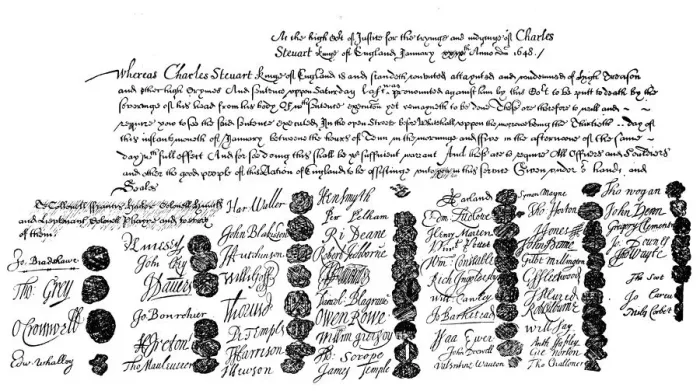 At the high Cort of Justice for the tryinge and iudginge of Charles
Steuart kinge of England January xxixth Anno Dni 1648./
Whereas Charles Steuart kinge of England is and standeth convicted attaynted and condemned of High Treason
and other high Crymes And sentence uppon Saturday last was pronounced against him by this Cort to be putt to death by the
severinge of his head from his body Of wch sentence execucon yet remayneth to be done These are therefore to will and
require you to see the said sentence executed In the open Streete before Whitehall uppon the morrowe being the Thirtieth day of
this instant moneth of January betweene the houres of Tenn in the morninge and Five in the afternoone of the same
day wth full effect And for soe doing this shall be yor sufficient warrant And these are to require All Officers and Souldiers
and other the good people of this Nation of England to be assistinge unto you in this service Given under or hands and
Seales
To Collonell Francis Hacker Colonell Huncks
and Lieutenant Colonell Phayre and to every
of them.
Jo. Bradshawe
Tho: Grey
O Cromwell
Edw. Whalley
M Livesey
John Okey
J Danvers
Jo Bourchier
H Ireton
Tho Mauleverer
Har Waller
John Blakiston
J Hutchinson
Willi Goff
Tho Pride
Pe Temple
T Harrison
J Hewson
Hen Smyth
Per Pelham
Ri Deane
Robert Tichborne
H Edwardes
Daniel Blagrave
Owen Rowe
William Purefoy
Ad: Scrope
James Temple
A Garland
Edm Ludlowe
Henry Marten
Vinct Potter
Wm: Constable
Rich Ingoldesby
Will Cawley
Jo Barkestead
Isaa Ewer
John Dixwell
Valentine Wauton
Symon Mayne
Tho Horton
J Jones
John Moore
Gilbt Millington
G Fleetwood
J Alured
Robt Lilburne
Will Say
Anth Stapley
Gre Norton
Tho Challoner
Tho Wogan
John Venn
Gregory Clement
Jo Downes
Tho Wayte
Tho Scot
Jo Carew
Miles Corbet